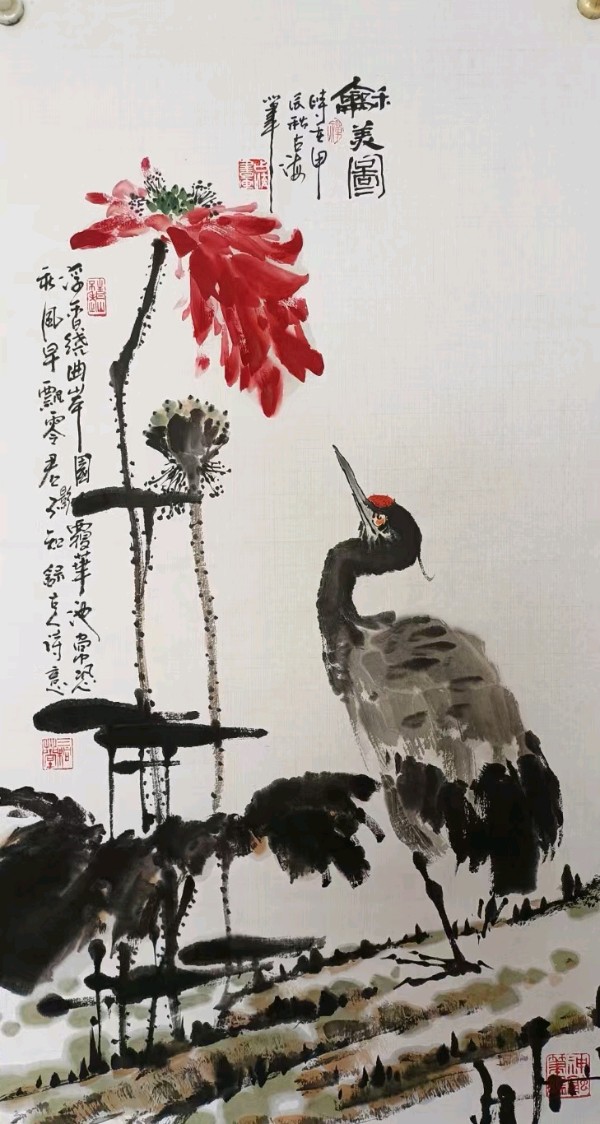 龢美圖
時在甲
辰秋
筆
浮香繞曲岸圓影覆華池常恐
秋風早飄零君不知錄古人詩意